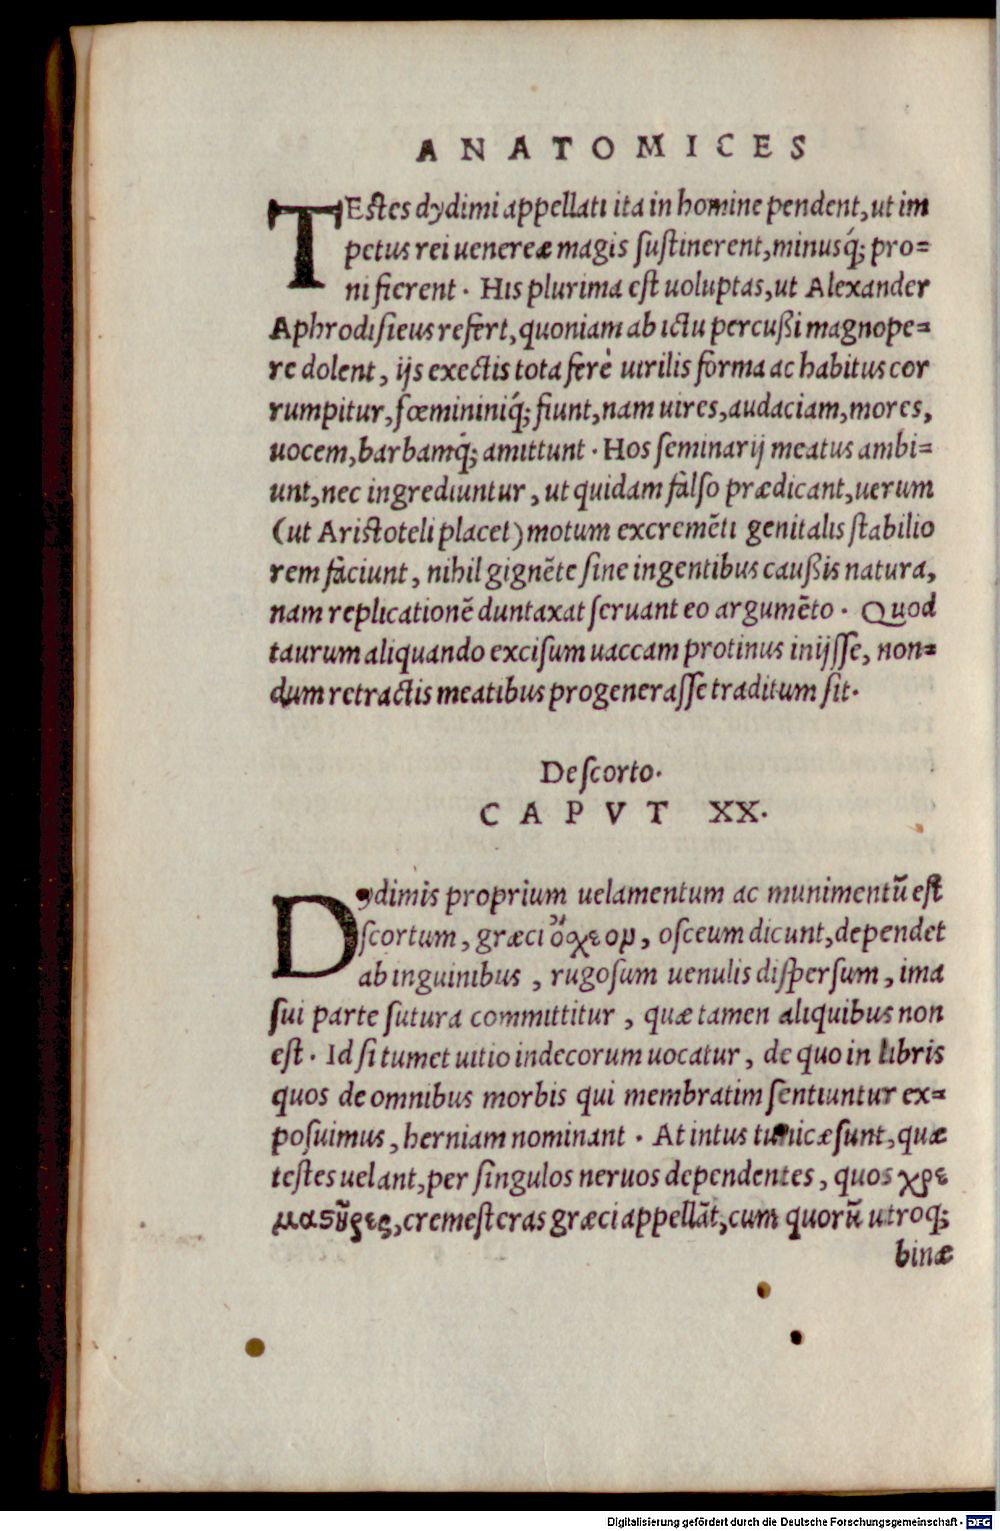 ANATOMICES
TEstes dydimi appellati ita in homine pendent, ut im
petus rei uenereæ magis ſuſtinerent, minusq́; pro=
ni fierent. His plurima eſt uoluptas, ut Alexander
Aphrodiſieus refert, quoniam ab ictu percußi magnope=
re dolent, ijs exectis tota ferè uirilis forma ac habitus cor
rumpitur, fœmininiq́; fiunt, nam uires, audaciam, mores,
uocem, barbamq́; amittunt. Hos ſeminarij meatus ambi=
unt, nec ingrediuntur, ut quidam falſo prædicant, uerum
(ut Ariſtoteli placet) motum excremẽti genitalis ſtabilio
rem faciunt, nihil gignẽte ſine ingentibus caußis natura,
nam replicationẽ duntaxat ſeruant eo argumẽto. Quod
taurum aliquando exciſum uaccam protinus inijſſe, non=
dum retractis meatibus progeneraſſe traditum ſit.
De ſcorto.
CAPVT XX.
Dydimis proprium uelamentum ac munimentũ eſt
ſcortum, græci ὄχεον, oſceum dicunt, dependet
ab inguinibus, rugoſum uenulis diſperſum, ima
ſui parte ſutura committitur, quæ tamen aliquibus non
eſt. Id ſi tumet uitio indecorum uocatur, de quo in libris
quos de omnibus morbis qui membratim ſentiuntur ex=
poſuimus, herniam nominant. At intus tunicæ ſunt, quæ
teſtes uelant, per ſingulos neruos dependentes, quos χρε
μαϛῆρες, cremeſteras græci appellãt, cum quorũ utroq;
binæ
Digitalisierung gefördert durch die Deutsche Forschungsgemeinschaft - DFG